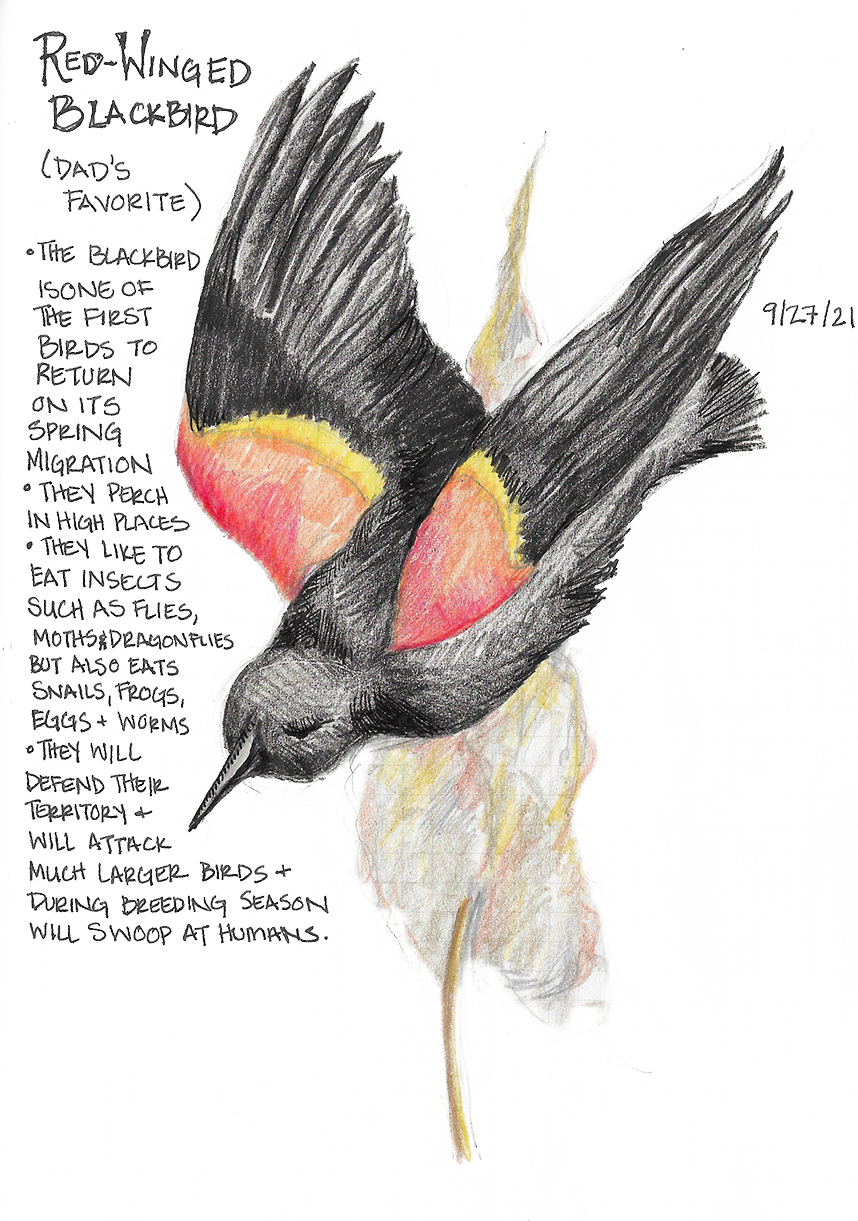 RED-WINGED
BLACKBIRD
(DAD'S
FAVORITE)
• THE BLACKBIRD
IS ONE OF
THE FIRST
BIRDS TO
RETURN
ON ITS
SPRING
MIGRATION
• THEY PERCH
IN HIGH PLACES
• THEY LIKE TO
EAT INSECTS
SUCH AS FLIES,
MOTHS & DRAGONFLIES
BUT ALSO EATS
SNAILS, FROGS,
EGGS + WORMS
• THEY WILL
DEFEND THEIR
TERRITORY +
WILL ATTACK
MUCH LARGER BIRDS +
DURING BREEDING SEASON
WILL SWOOP AT HUMANS.
9/27/21